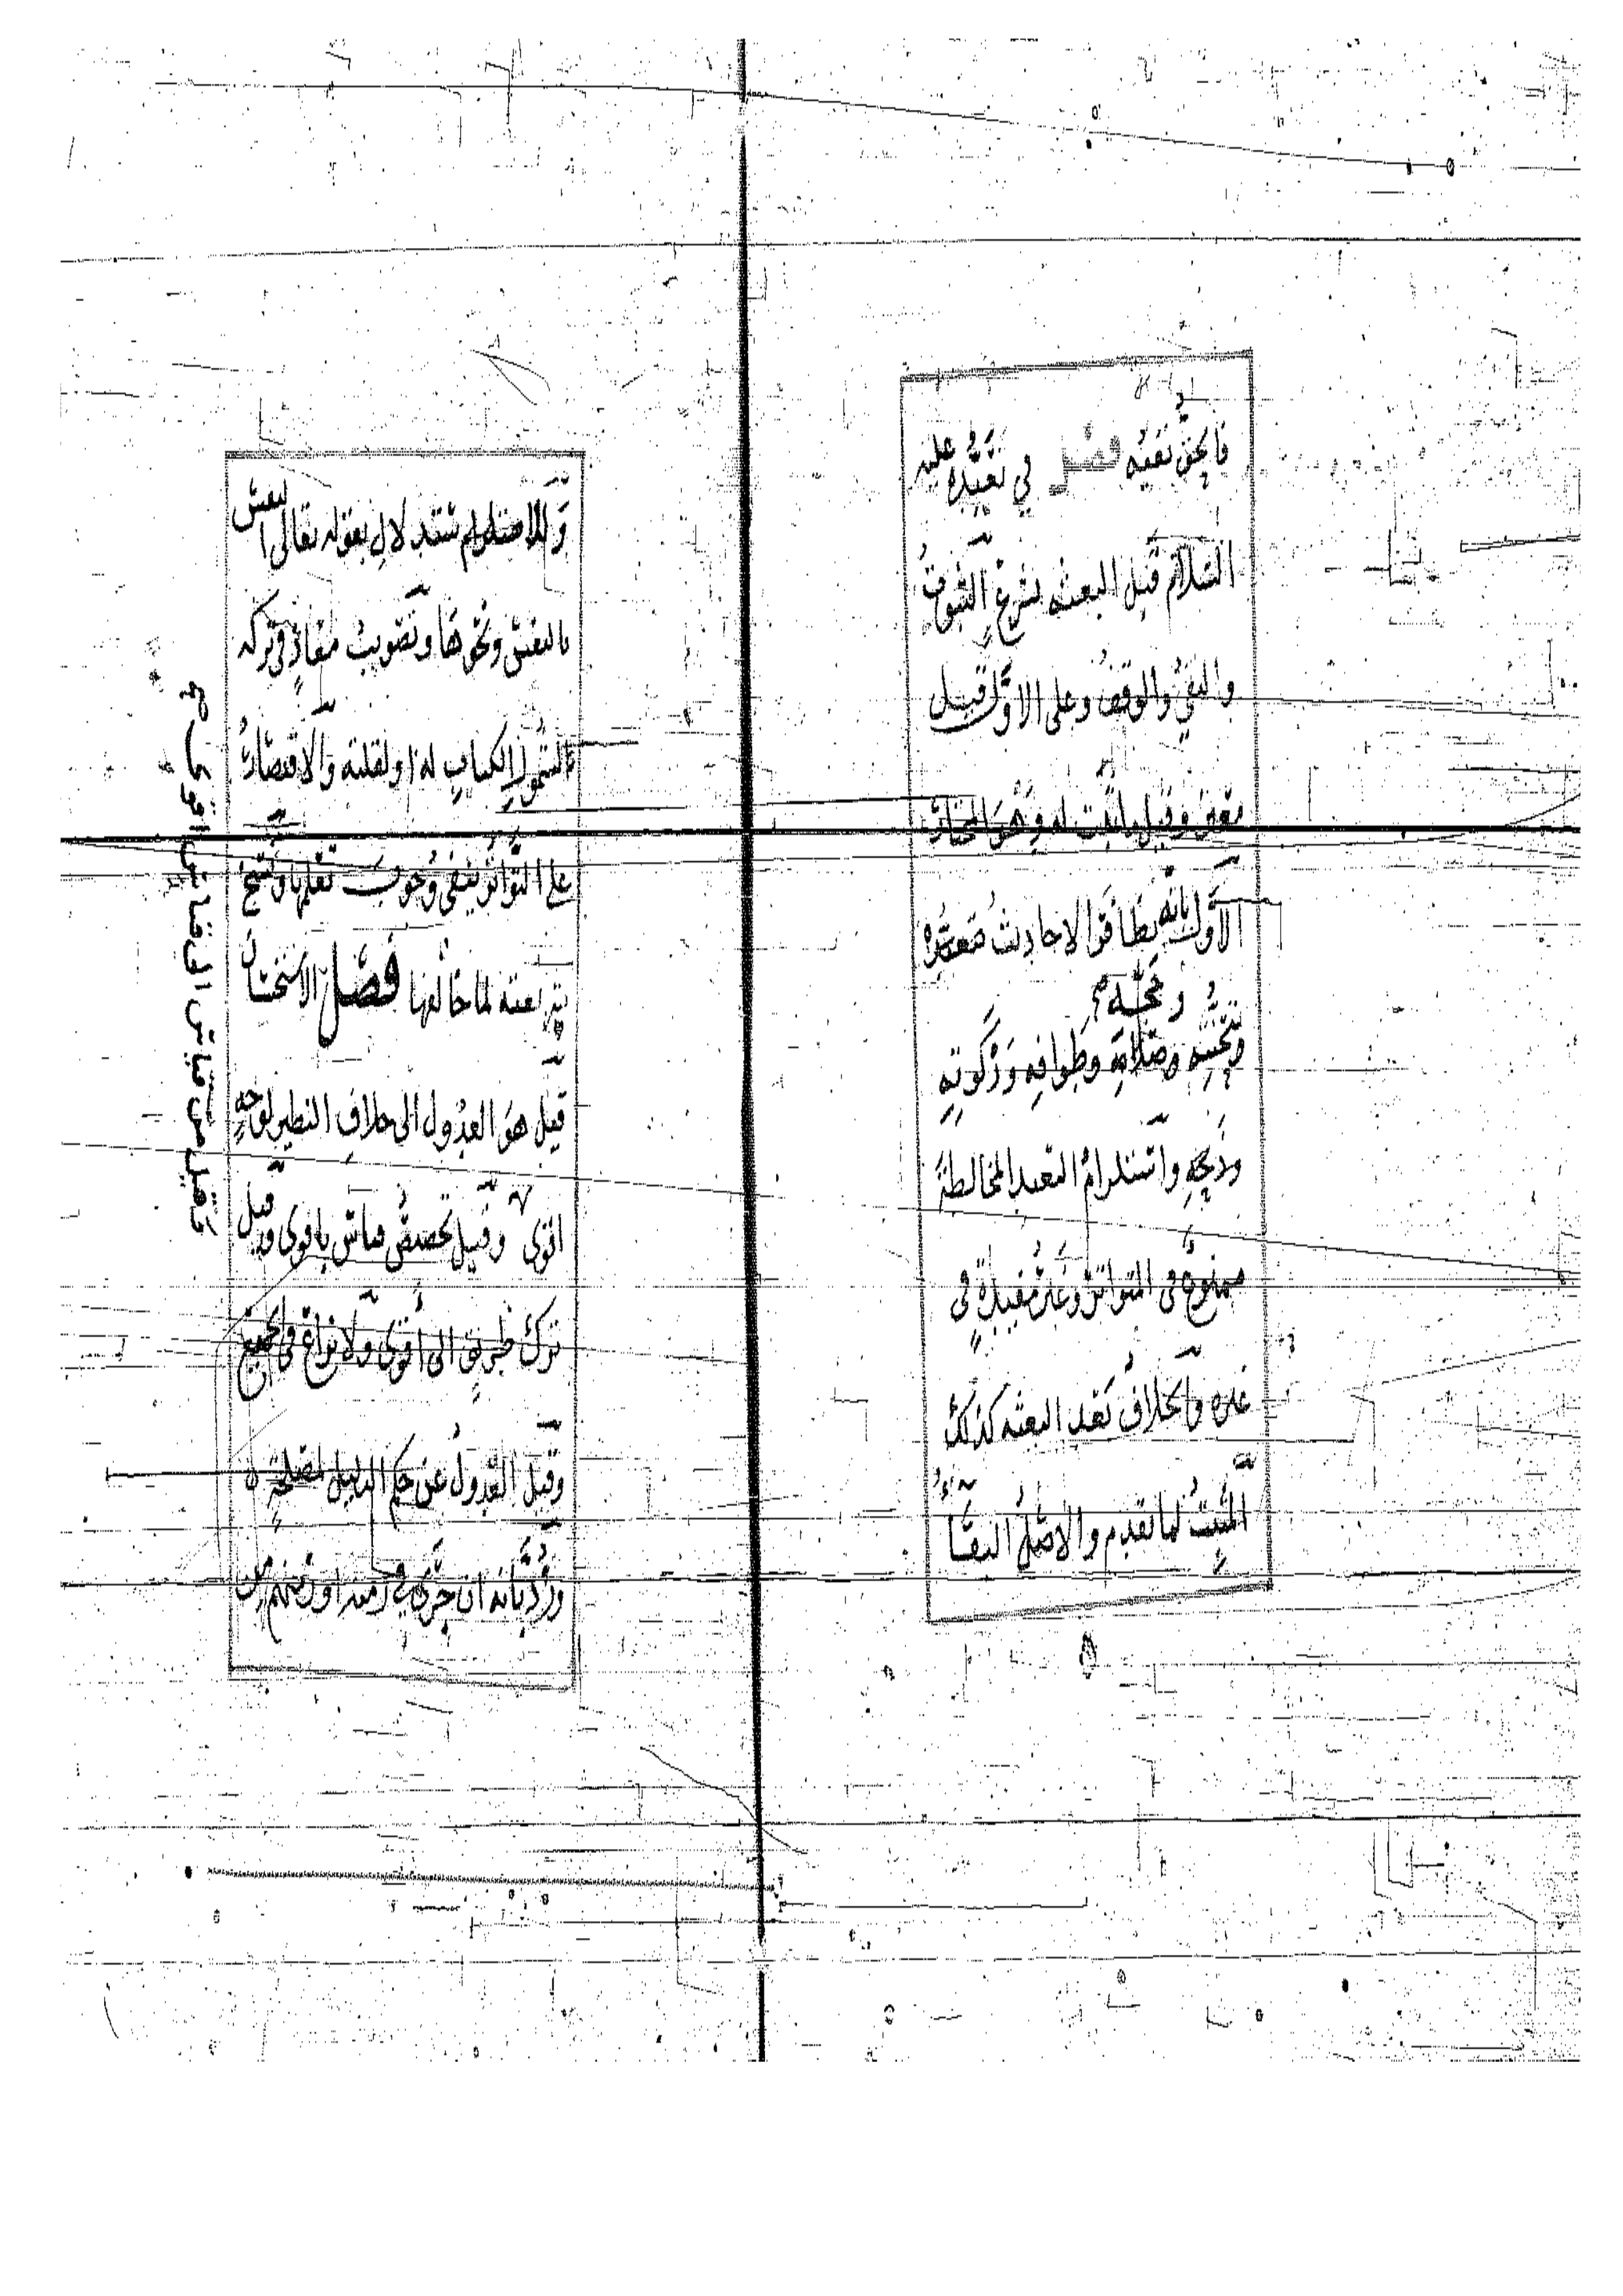 فالحق نفيه فصل في تعبده عليه
السلام قبل البعثه بشرع الثبوت
والنفي والوقف وعلى الاول قيل
معين وقيل ما ثبت له وهو المختار
الاول بانه تظافر الاحاديث متعبده
وحجه
وتحنثه وصلاته وطوافه وزكوته
وذبحه واستلزام التعبد المخالطة
ممنوع في المتواتر وغير مفيدة في
غيره والخلاف بعد البعثه كذلك
المثبت لما تقدم والاصل البقاء
وللاستدلال بقوله تعالى النفس
بالنفس ونحوها وتصويب معاذ في تركه
لشمول الكتاب له او لقلته والاقتصار
على التواتر ينفي وجوب تعلمها ونسخ
شريعته لما خالفها فصل الاستحسان
قيل هو العدول الى خلاف النظير لوجه
اقوى وقيل تخصيص قياس باقوى وقيل
ترك طريق الى أقوى ولا نزاع في الجميع
وقيل العدول عن حكم الدليل لمصلحة
ورد بانه ان جرى في زمنه او زمنهم من
وقيل من قياس الى قياس اقوى